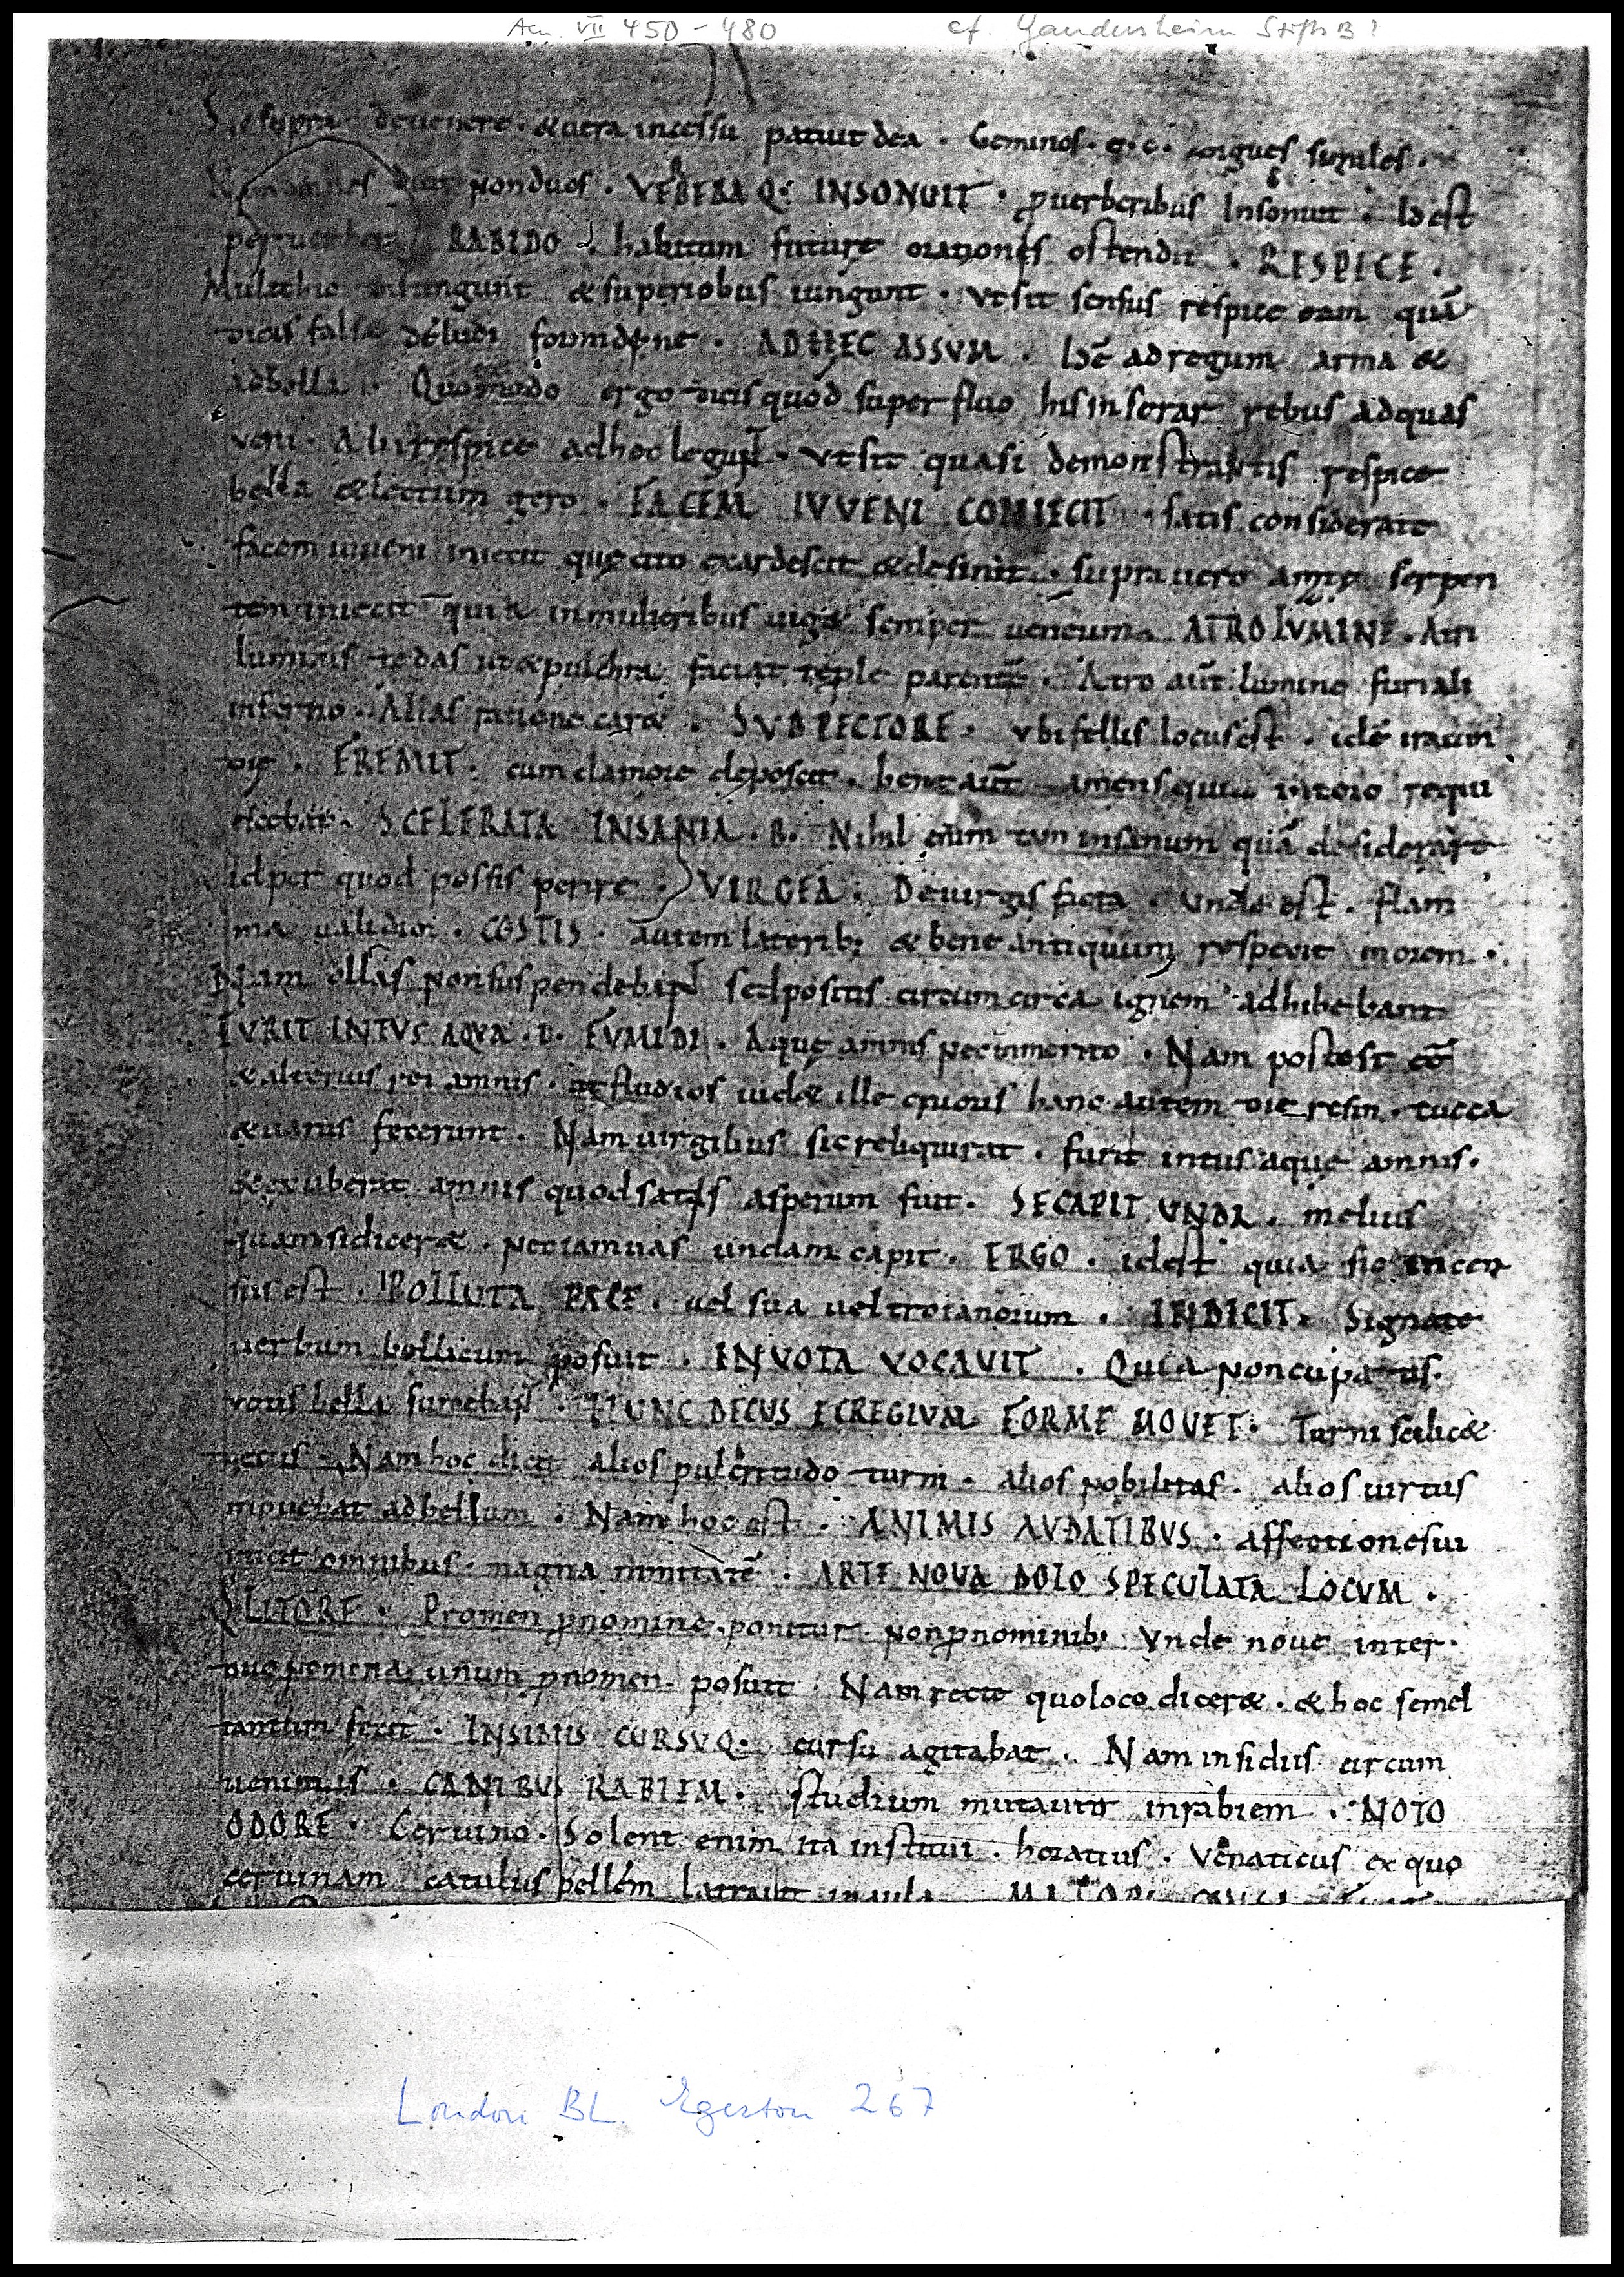 Aen. VII 450-480 cf. Gandersheim Stifts B?
Sic supra devenere · & uera incessu patuit dea · Geminos · e · c · angues similes ·
non duos · VERBERA Q: INSONUIT · puerberibus Insonuit · Id est
RABIDO · habitum future orationis ostendit · RESPICE ·
Multi hic & superiobus iungunt · Vt sit sensus respice eam quā
dicis falsa deludi formidine · AD HEC ASSUM · Idē ad regum arma &
ad bella · Quomodo ergo dicis quod superfluo his inserar rebus ad quas
veni · Alii respice ad hoc legunt · Vt sit quasi demonstrantis respice
bella & lectum gero · FACEM IVVENI CONIECIT · satis considerate
facem iuueni iniecit quę cito exardescit & desinit · supra uero serpen
tem iniecit quia in mulieribus uig& semper uenenum · ATRO LVMINE · Atri
luminis tedas ut & pulchra faciat parentē · Atro aūt lumine furiali
inferno · Alias ratione car& · SUB PECTORE · Vbi fellis locus est · idē iracun
dię · FREMIT · cum clamore deposcit · bene aūt amens quia in toro requi
SCELERATA INSANIA · B · Nihil enim tan insanum quā desiderare
id per quod possis perire · VIRGEA · De uirgis facta · Unde est · flam
ma ualidior · COSTIS · autem laterib; & bene antiquum respexit morem ·
Nam ollas non suspendebant sed positis circum circa ignem adhibebant
FURIT INTVS AQVA · I · FUMIDI · Aquę amnis nec inmerito · Nam postest eē
& alterius rei amnis · ut fluuios uid& ille cruoris hanc autem die resin · tucca
& uarus fecerunt · Nam uirgilius sic reliquirat · furit intus aquę amnis ·
& exuberat amnis quod satis asperum fuit · SE CAPIT UNDA · melius
quam si dicer& · nec iam uas undam capit · ERGO · id est quia sic incen
sus est · POLLUTA PACE · uel sua uel troianorum · INDICIT · Signate
uerbum bellicum posuit · IN VOTA VOCAVIT · Quia noncupatis
votis bella · HUNC DECUS EGREGIVM FORME MOVET · Turni scilic&
Nam hoc dicit alios pulcritudo turni · alios nobilitas · alios uirtus
mouebat ad bellum · Nam hoc est · ANIMIS AUDATIBUS · affectione sui
omnibus · magna · ARTE NOVA DOLO SPECULATA LOCVM ·
Q LITORE · Promen pnomine ponitur non pnominib; Vnde noue inter
duo nomena unum pnomen posuit · Nam recte quo loco dicer& · & hoc semel
tantum fecit · INSIDIIS CURSUQ: cursu agitabat · Nam insidiis circum
uenimus · CANIBUS RABIEM · studium mutauit in rabiem · NOTO
ODORE · Ceruino · Solent enim ita institui · horatius · Venaticus ex quo
ceruinam catulus pellem latrauit in aula
London BL. Egerton 267